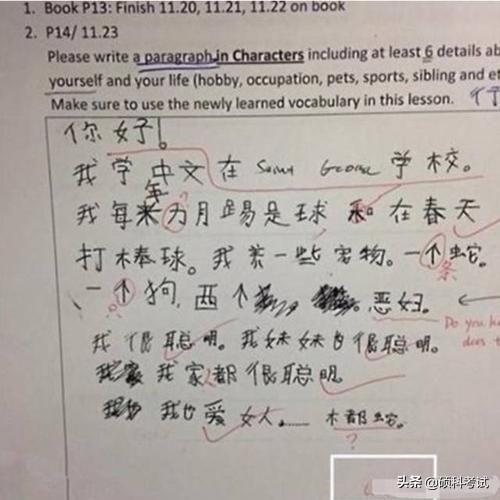 1. Book P13: Finish 11.20, 11.21, 11.22 on book
2. P14/ 11.23
Please write a paragraph in Characters including at least 6 details ab
yourself and your life (hobby, occupation, pets, sports, sibling and et
Make sure to use the newly learned vocabulary in this lesson.
你好!
我学中文在 Saint George 学校。
我每年为月踢是球和在春天
打棒球。我养一些宠物。一个蛇。
条
一个狗,西个 恶妇。
Do you kn
does t
我很聪明。我妹妹也很聪明。
我家都很聪明。
我也爱女人......木都蛇。
?
头条 @硕科考试